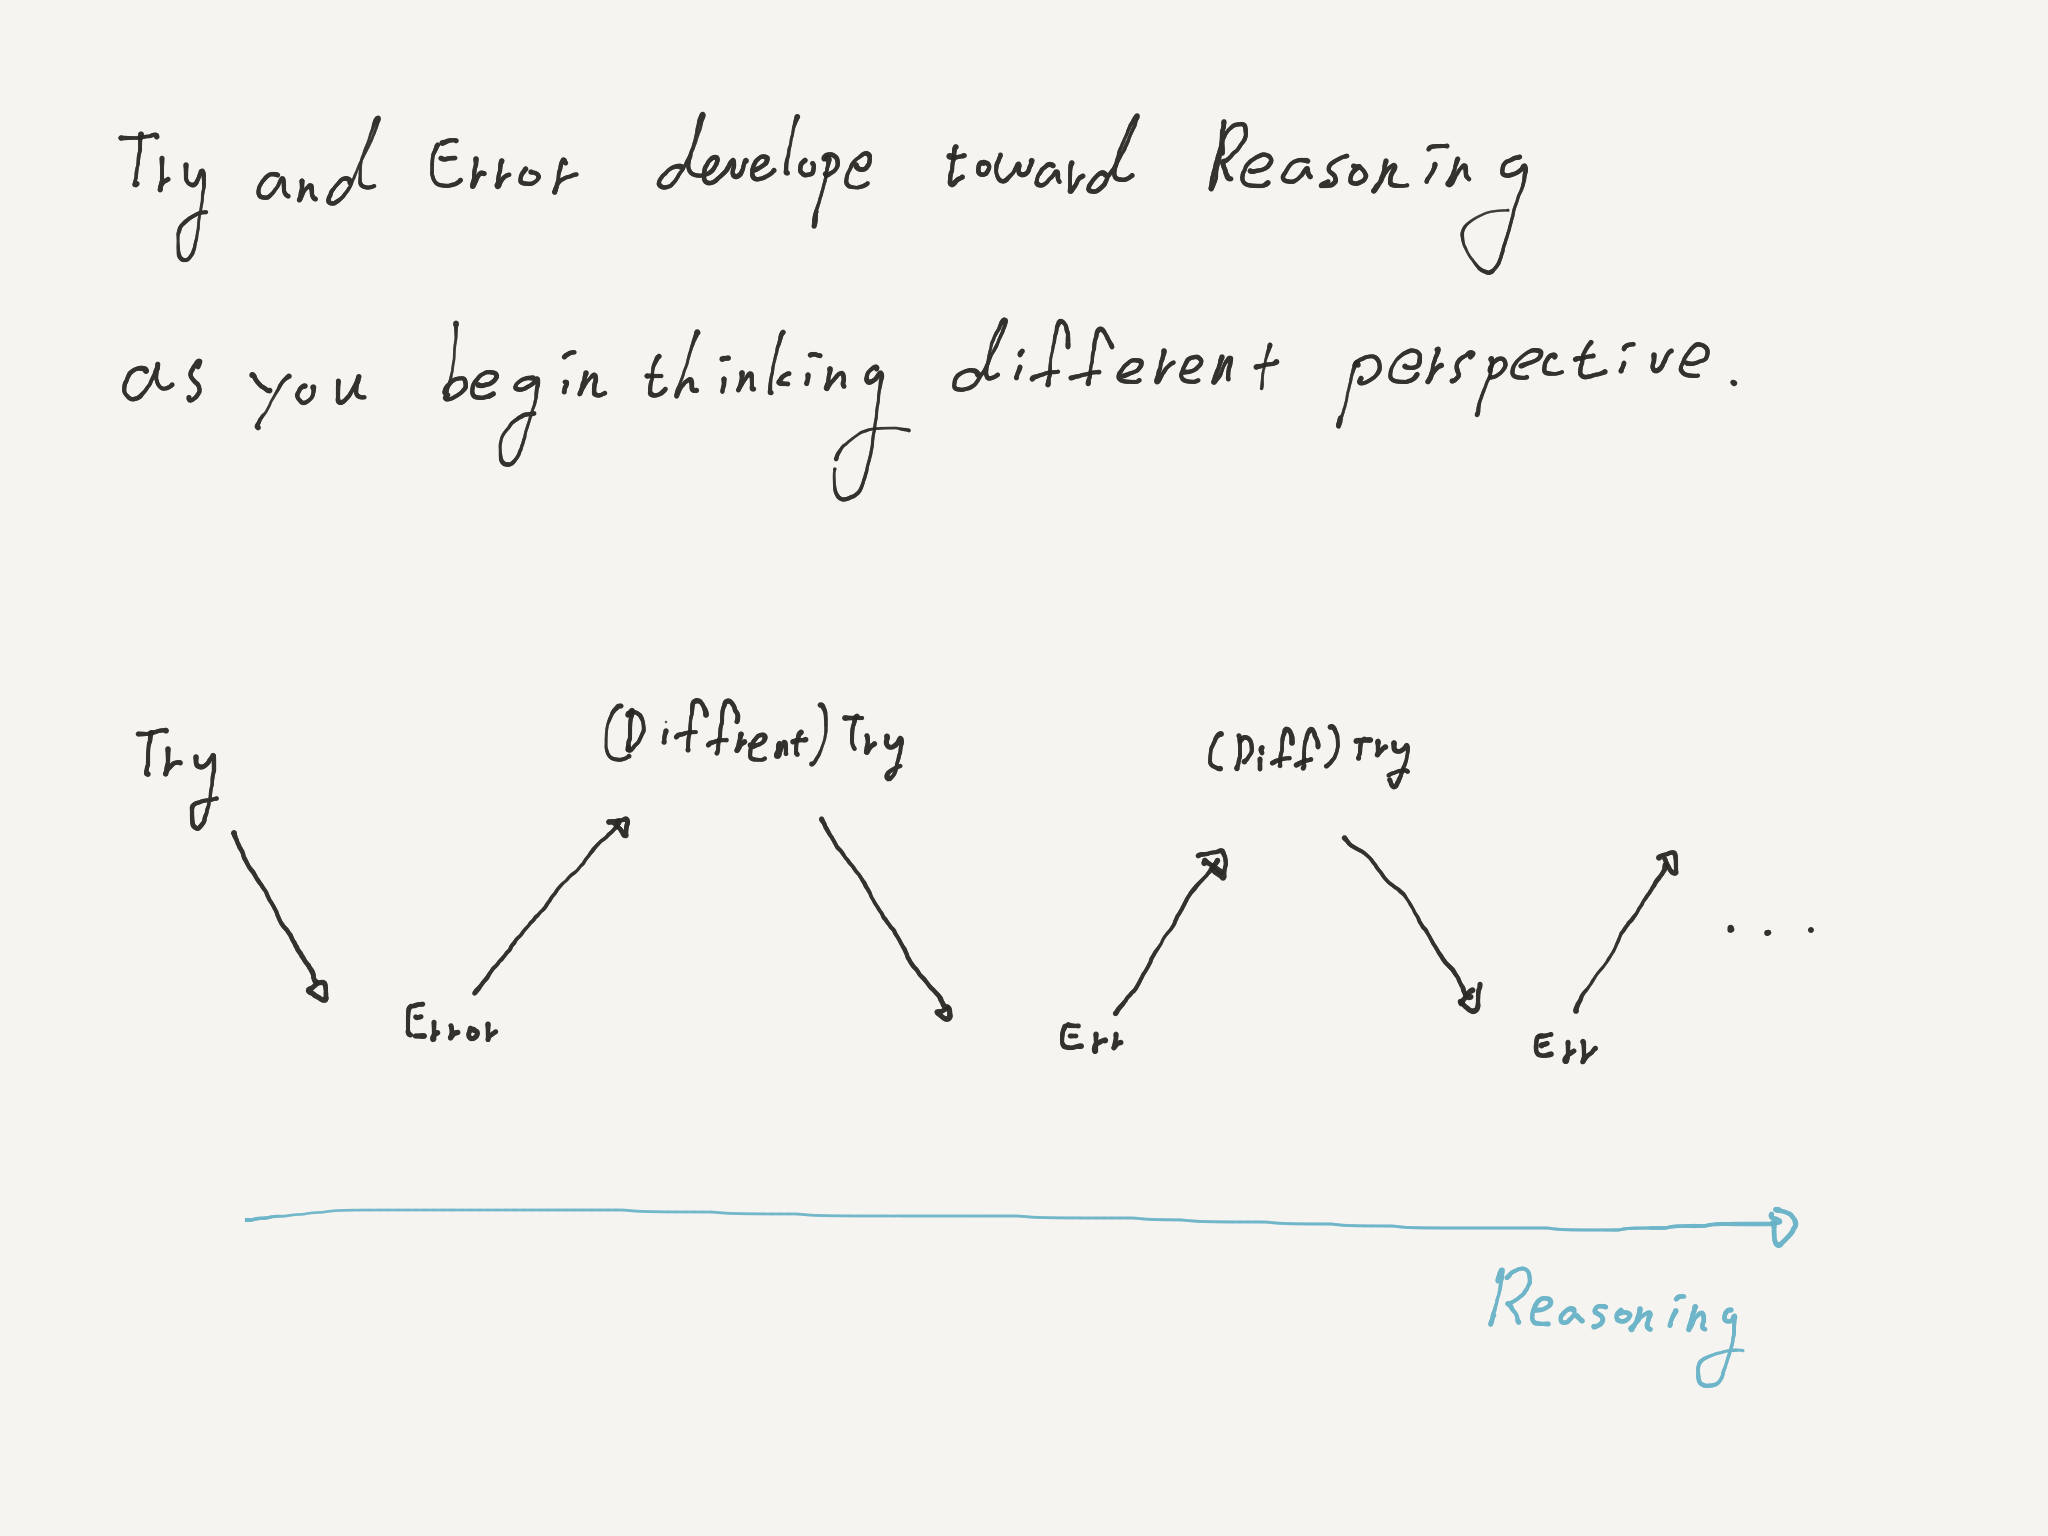 Try and Error develope toward Reasoning
as you begin thinking different perspective.
Try
(Diffrent) Try
(Diff) Try
Error
Err
Err
. . .
Reasoning